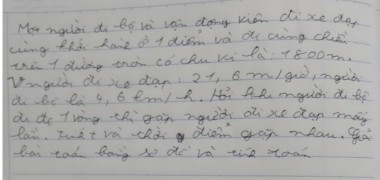 Một người đi bộ và vận động viên đi xe đạp
cùng khởi hành ở 1 điểm và đi cùng chiều
trên 1 đường tròn có chu vi là: 1800m.
V người đi xe đạp: 21,6 m/giờ, người
đi bộ là 4,6 km/h. Hỏi khi người đi bộ
đi đc 1 vòng thì gặp người đi xe đạp mấy
lần. Tính t và thời điểm gặp nhau. Giải
bài toán bằng sơ đồ và tính toán